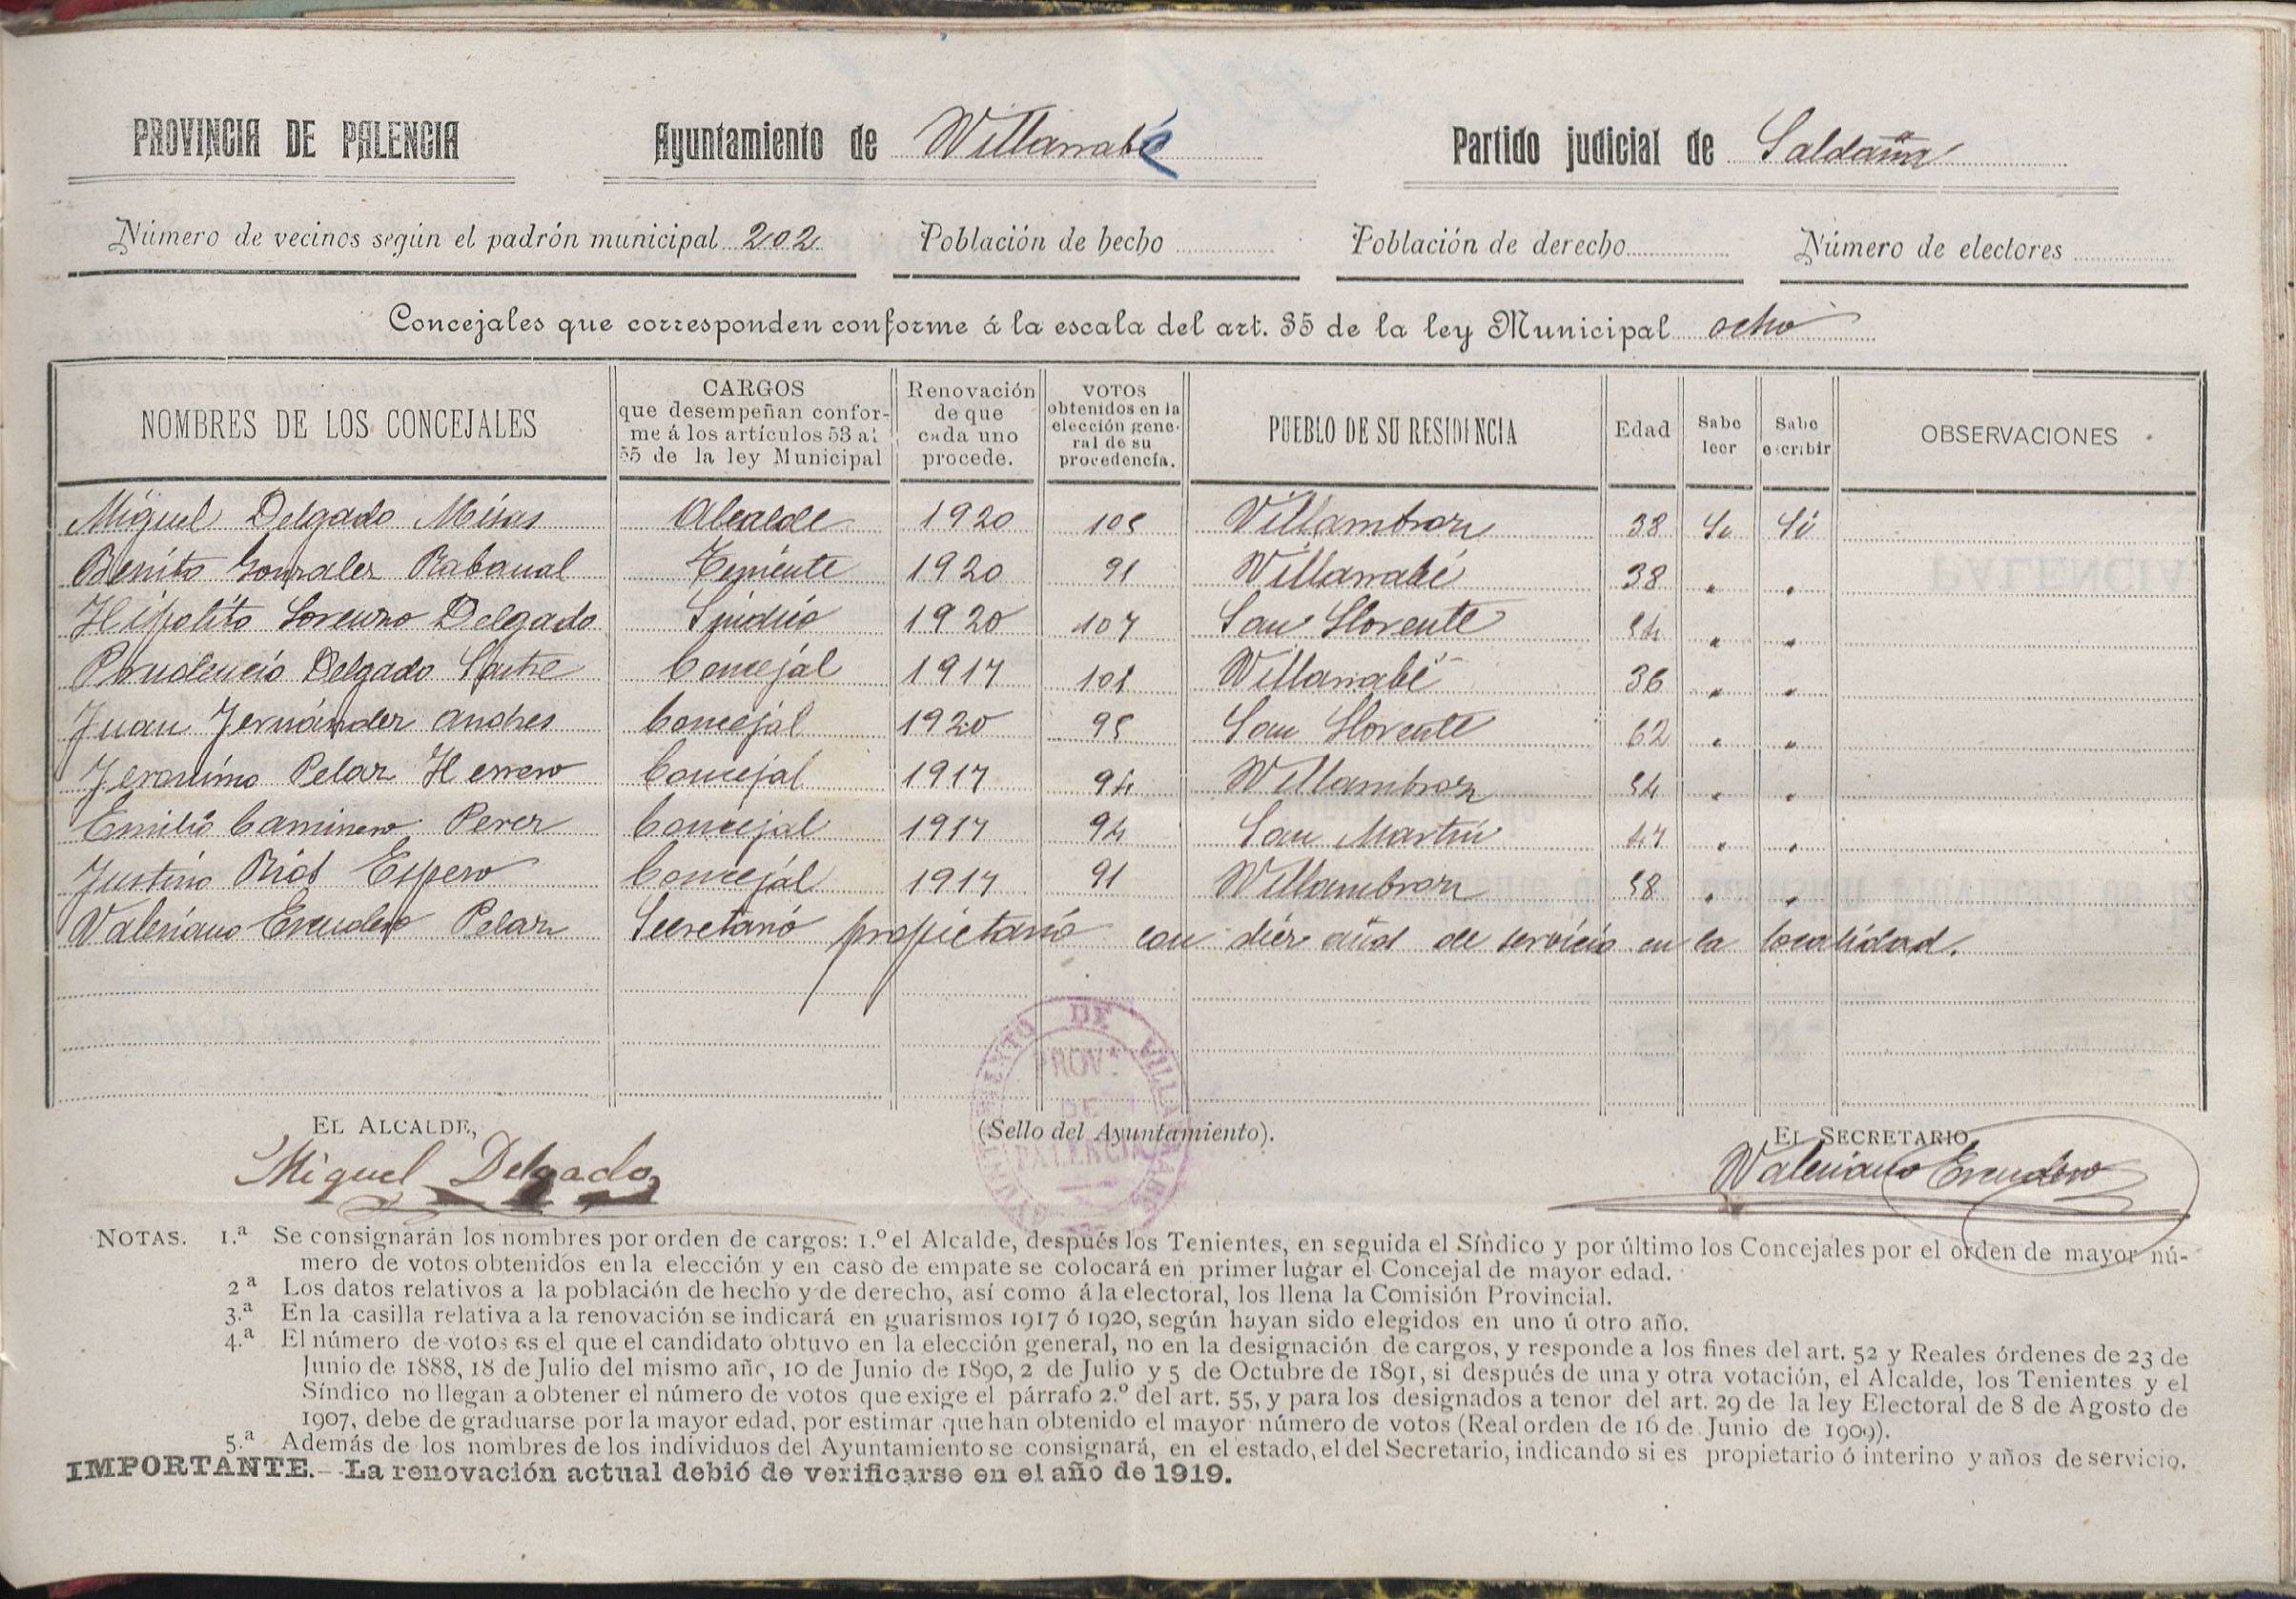 PROVINCIA DE PALENCIA Ayuntamiento de Villarrabé Partido judicial de Saldaña
Número de vecinos según el padrón municipal 202 Población de hecho Población de derecho Número de electores
Concejales que corresponden conforme á la escala del art. 35 de la ley Municipal ocho
NOMBRES DE LOS CONCEJALES
CARGOS
que desempeñan confor-
me á los artículos 53 al
55 de la ley Municipal
Renovación
de que
cada uno
procede.
VOTOS
obtenidos en la
elección gene-
ral de su
procedencia.
PUEBLO DE SU RESIDENCIA
Edad
Sabe
leer
Sabe
escribir
OBSERVACIONES
Miguel Delgado Misas Alcalde 1920 105 Villambroz 38 Si Si
Benito Gonzalez Rabanal Teniente 1920 91 Villarrabé 38 " "
Hipolito Lorenzo Delgado Sindico 1920 107 San Llorente 54 " "
Prudencio Delgado Sastre Concejal 1917 101 Villarrabé 36 " "
Juan Fernández Andres Concejal 1920 95 San Llorente 62 " "
Jeronimo Pelaz Herrero Concejal 1917 94 Villambroz 54 " "
Emilio Caminero Perez Concejal 1917 94 San Martin 47 " "
Justino Rios Espero Concejal 1917 91 Villambroz 58 " "
Valeriano Escudero Pelaz Secretario propietario con diez años de servicio en la localidad.
EL ALCALDE, (Sello del Ayuntamiento). EL SECRETARIO,
Miguel Delgado Valeriano Escudero
AYUNTAMIENTO DE VILLARRABÉ
PROV.ª
DE
PALENCIA
NOTAS. 1.ª Se consignarán los nombres por orden de cargos: 1.º el Alcalde, después los Tenientes, en seguida el Síndico y por último los Concejales por el orden de mayor nú-
mero de votos obtenidos en la elección y en caso de empate se colocará en primer lugar el Concejal de mayor edad.
2ª Los datos relativos a la población de hecho y de derecho, así como á la electoral, los llena la Comisión Provincial.
3.ª En la casilla relativa a la renovación se indicará en guarismos 1917 ó 1920, según hayan sido elegidos en uno ú otro año.
4.ª El número de votos es el que el candidato obtuvo en la elección general, no en la designación de cargos, y responde a los fines del art. 52 y Reales órdenes de 23 de
Junio de 1888, 18 de Julio del mismo año, 10 de Junio de 1890, 2 de Julio y 5 de Octubre de 1891, si después de una y otra votación, el Alcalde, los Tenientes y el
Síndico no llegan a obtener el número de votos que exige el párrafo 2.º del art. 55, y para los designados a tenor del art. 29 de la ley Electoral de 8 de Agosto de
1907, debe de graduarse por la mayor edad, por estimar que han obtenido el mayor número de votos (Real orden de 16 de Junio de 1909).
5.ª Además de los nombres de los individuos del Ayuntamiento se consignará, en el estado, el del Secretario, indicando si es propietario ó interino y años de servicio.
IMPORTANTE.- La renovación actual debió de verificarse en el año de 1919.